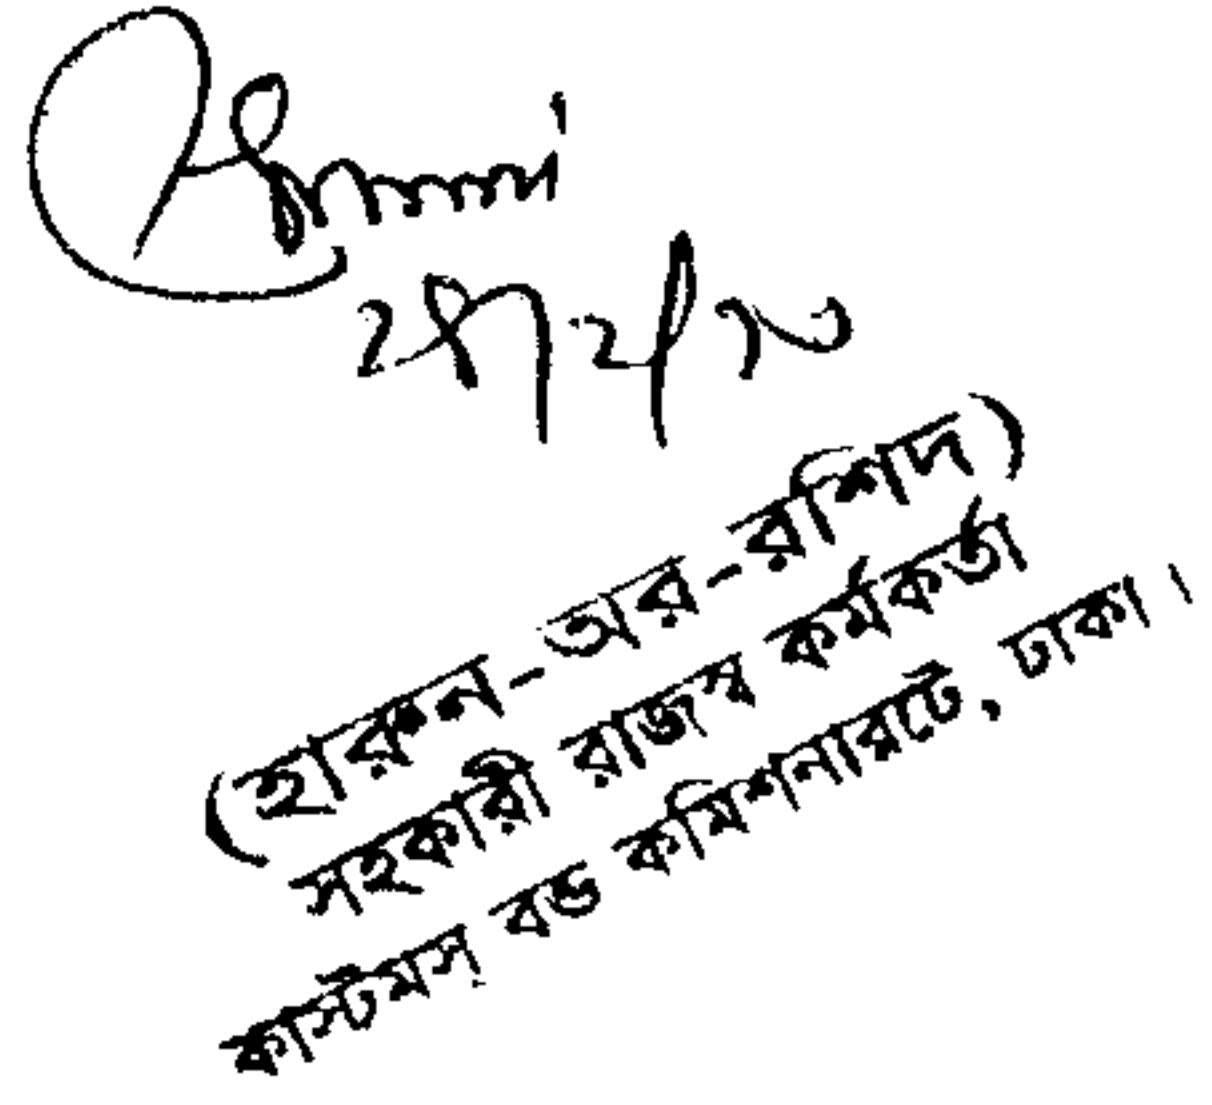 (হারুন-অর-রশিদ)
সহকারী রাজস্ব কর্মকর্তা
কাস্টমস্ বন্ড কমিশনারেট, ঢাকা।